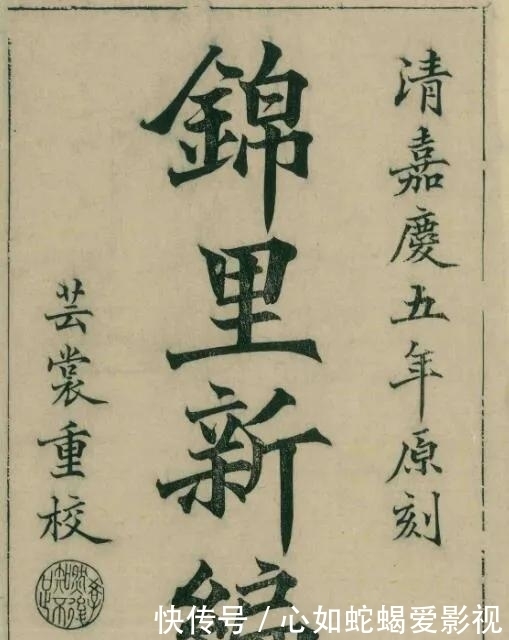 清嘉慶五年原刻
錦里新編
芸裳重校
快传号 / 心如蛇蝎爱影视